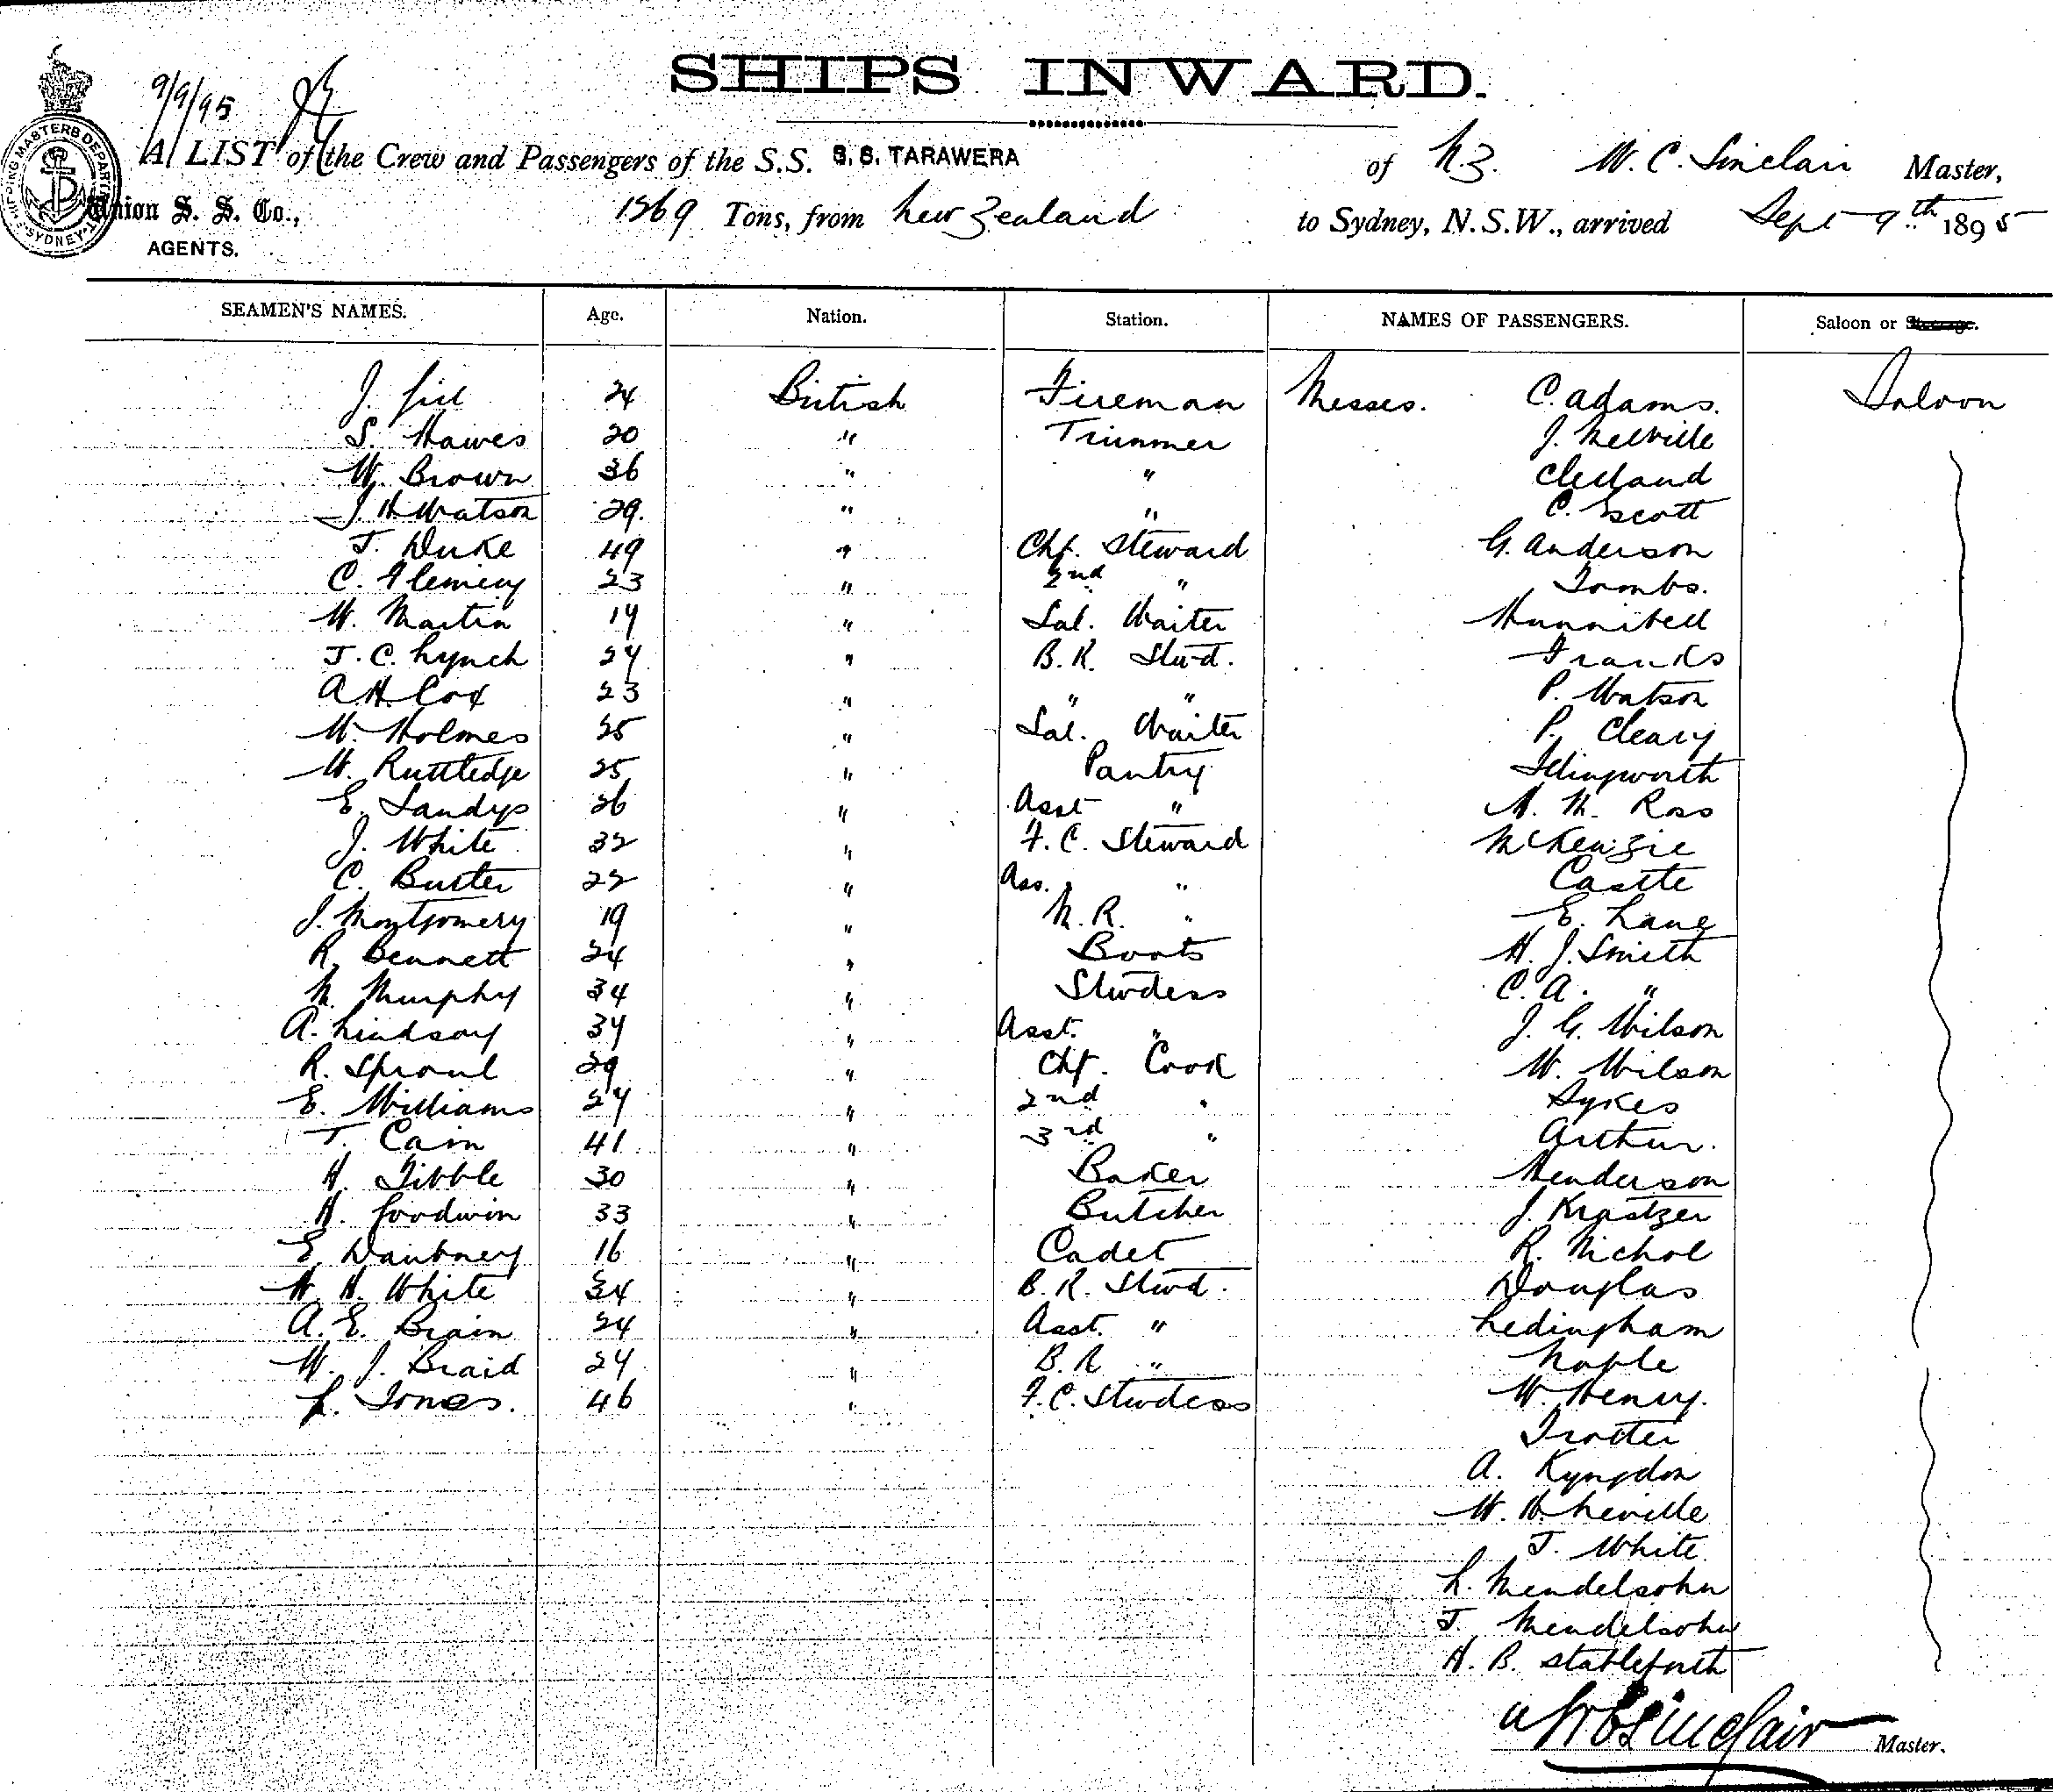 SHIPS INWARD.
9/9/95
A LIST of the Crew and Passengers of the S.S. S. S. TARAWERA of N.Z. W. C. Sinclair Master,
Union S. S. Co., 1269 Tons, from New Zealand to Sydney, N.S.W., arrived Sept 9th 1895
AGENTS.
SHIPPING MASTERS DEPARTMENT SYDNEY
SEAMEN'S NAMES. Age. Nation. Station. NAMES OF PASSENGERS. Saloon or Steerage.
J. Gill 24 British Fireman Messrs. C. Adams. Saloon
S. Hawes 20 " Trimmer J. Melville
W. Brown 36 " " Clelland
J. H Watson 29. " " C. Scott
J. Duke 49 " Chf. Steward G. Anderson
C. Fleming 23 " 2nd " Tombs.
W. Martin 19 " Sal. Waiter Hunnibell
J. C. Lynch 24 " B. R. Stwd. Franks
A. H. Cox 23 " " " P. Watson
W. Holmes 25 " Sal. Waiter P. Cleary
W. Ruttledge 25 " Pantry Illingworth
E. Landys 26 " Asst " M. Ross
J. White 32 " F. C. Steward McKenzie
C. Burter 22 " Ass. " Castle
J. Montgomery 19 " M. R. " E. Lane
R. Bennett 24 " Boots H. J. Smith
M. Murphy 34 " Stwdess C. A. "
A. Lindsay 34 " Asst. " J. G. Wilson
R. Sproul 29 " Chf. Cook W. Wilson
E. Williams 24 " 2nd " Sykes
T. Cain 41 " 3rd " Arthur.
H. Tibble 30 " Baker Henderson
H. Goodwin 33 " Butcher J. Krastzer
E. Daubney 16 " Cadet R. Nichol
W. H. White 34 " B. R. Stwd. Douglas
A. E. Brain 24 " Asst. " Ledingham
W. J. Braid 24 " B. R " Naple
L. Jones. 46 " F. C. Stwdess W. Henry.
Trotter
A. Kyngdon
W. H. Neville
J. White
L. Mendelsohn
J. Mendelsohn
H. B. Stableforth
Sinclair Master.